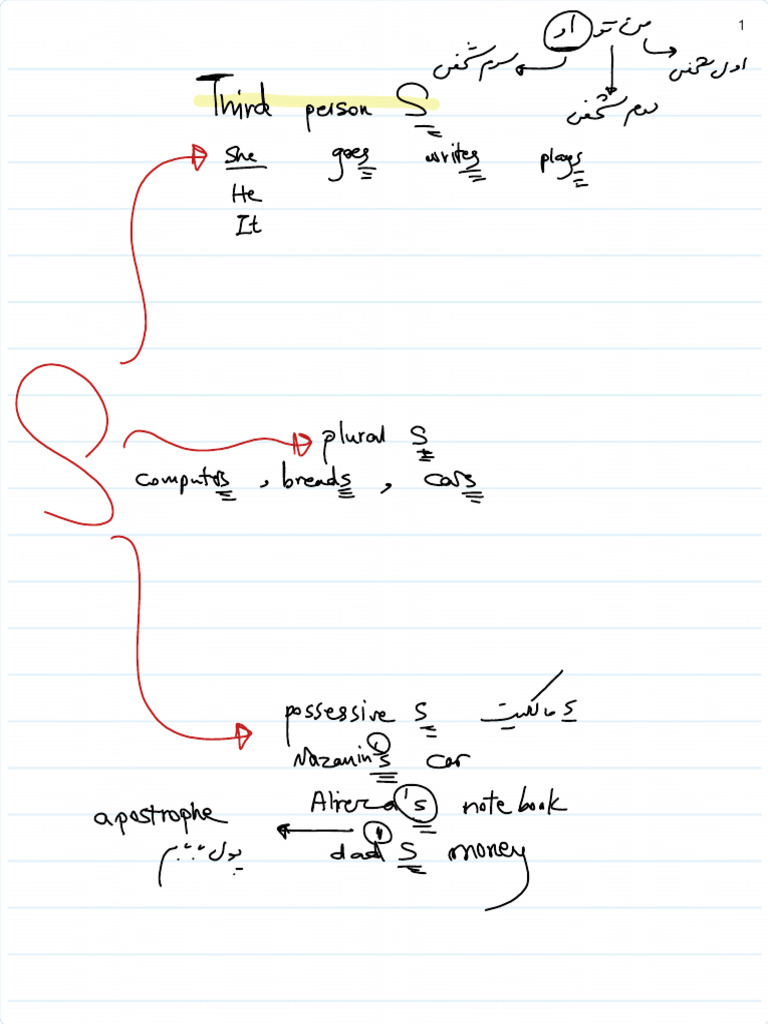 1
من تو او
اول شخص
سوم شخص
دوم شخص
Third person S
She goes writes plays
He
It
S
plural S
computers , breads , cars
possessive S مالکیت s
Nazanin's car
Alireza's notebook
apostrophe
dad's money
پول